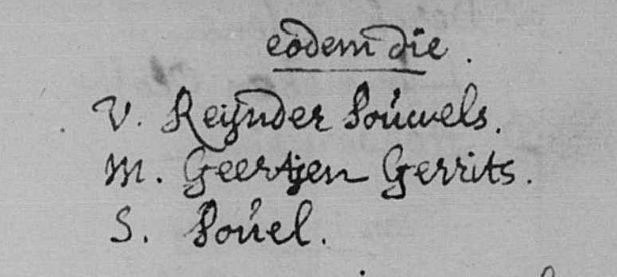 eodem die.
V. Reijnder Pouwels.
M. Geertjen Gerrits.
S. Pouel.